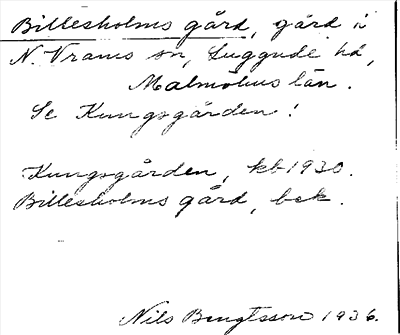 Billesholms gård, gård i
N. Vrams sn, Luggude hd,
Malmöhus län.
Se Kungsgården!
Kungsgården, kb 1930.
Billesholms gård, bek.
Nils Bengtsson 1936.